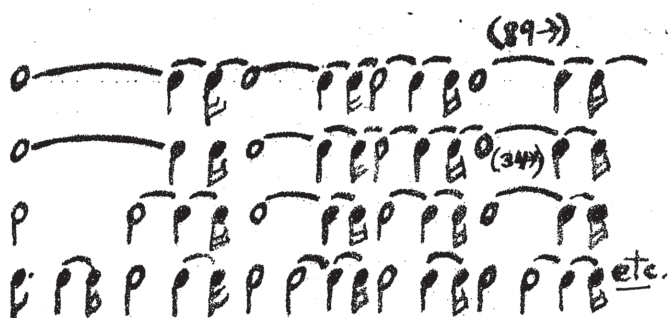 (89→)
(34→)
etc.